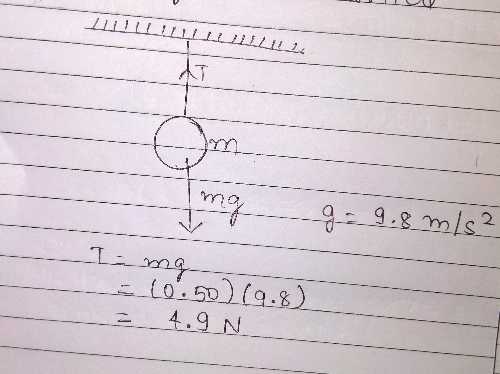 T
m
mg
g = 9.8 m/s²
T = mg
= (0.50)(9.8)
= 4.9 N